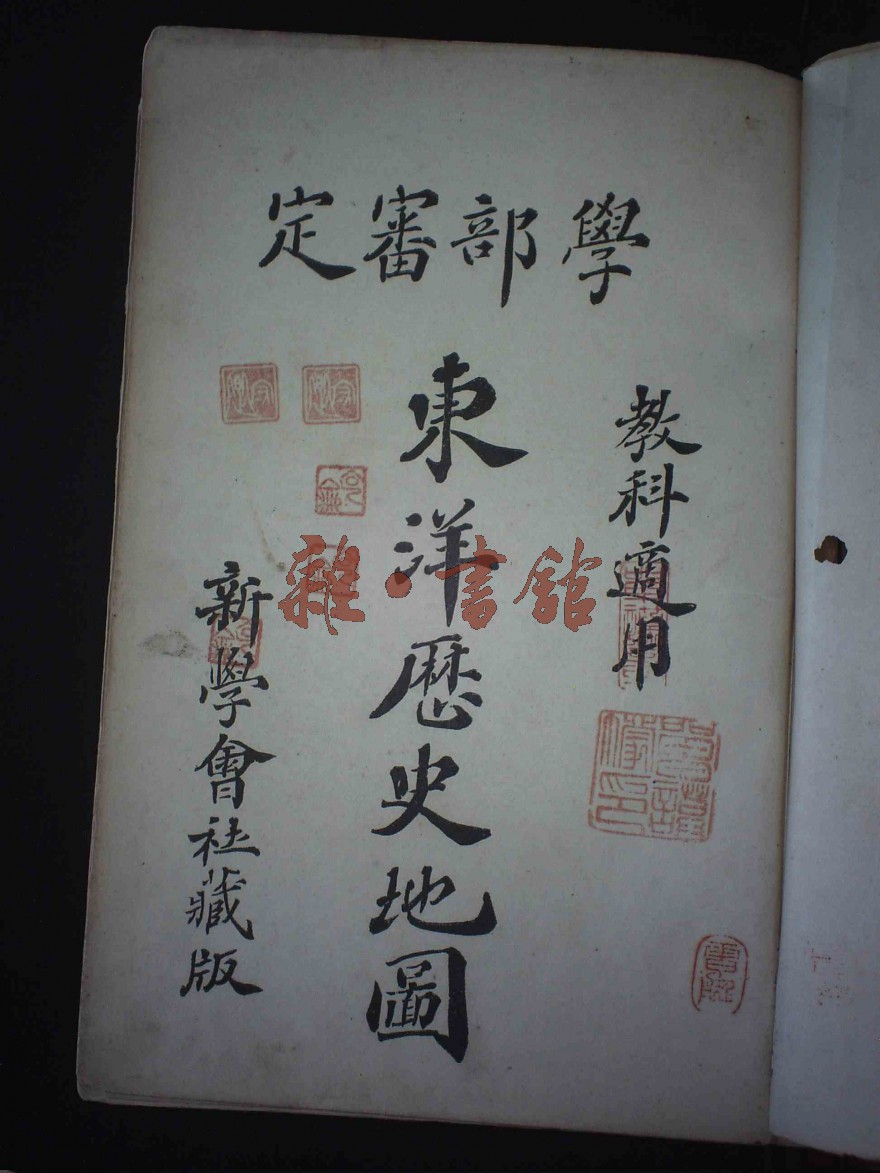 學部審定
教科適用
東洋歷史地圖
新學會社藏版
雜·書館